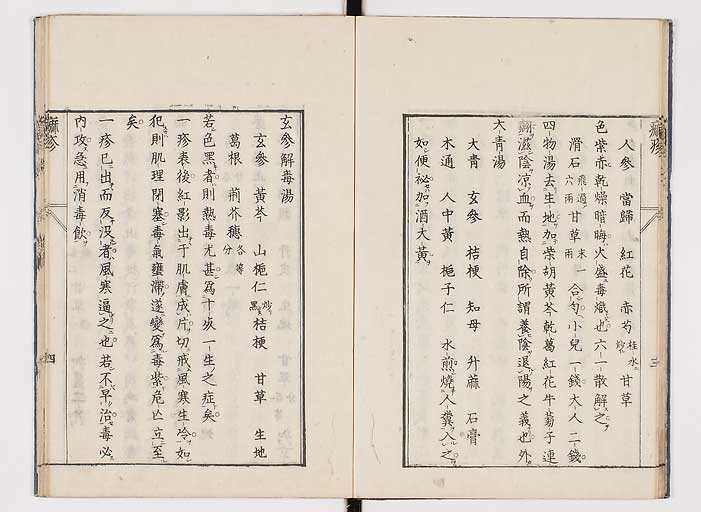 人參　當歸　紅花　赤芍 桂水炒 甘草
色紫赤乾燥暗晦火盛毒熾也六一散解之
滑石 飛過六兩 甘草 末一兩 合勻小兒一錢大人二錢
四物湯去生地加柴胡黃芩乾葛紅花牛蒡子連
翹滋陰凉血而熱自除所謂養陰退陽之義也外
大青湯
大青　玄參　桔梗　知母　升麻　石膏
木通　人中黃　梔子仁　水煎燒人糞入之
如便祕加酒大黃
麻疹　三
玄參解毒湯
玄參　黃芩　山梔仁 炒黑 桔梗　甘草　生地
葛根　荊芥穗 各等分
若色黑者則熱毒尤甚爲十妀一生之症矣
一疹表後紅影出于肌膚成片切戒風寒生冷如
犯則肌理閉塞毒氣壅滯遂變爲毒紫危亡立至
矣
一疹已出而反沒者風寒逼之也若不早治毒必
內攻急用消毒飲
麻疹　四